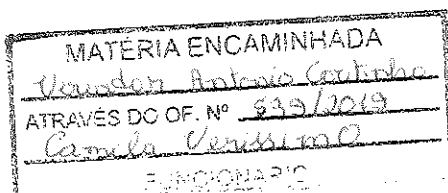 MATÉRIA ENCAMINHADA
Vereador Antonio Coutinho
ATRAVÉS DO OF. Nº 839/2019
Camila Verissimo
FUNCIONARIO